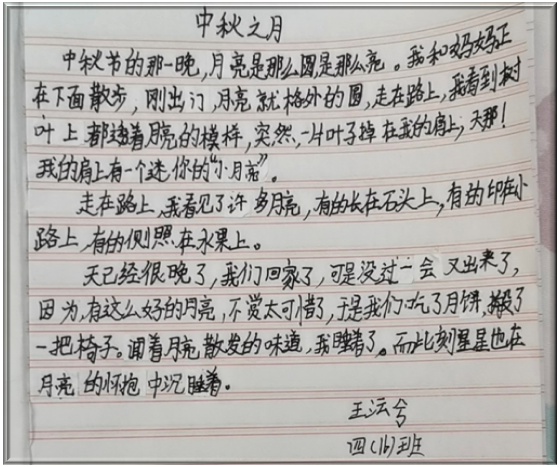 中秋之月
中秋节的那一晚,月亮是那么圆,是那么亮。我和妈妈正
在下面散步,刚出门,月亮就格外的圆,走在路上,我看到树
叶上都透着月亮的模样,突然,一片叶子掉在我的肩上,天那!
我的肩上有一个迷你的“小月亮”。
走在路上,我看见了许多月亮,有的长在石头上,有的印在小
路上,有的倒照在水果上。
天已经很晚了,我们回家了,可是没过一会又出来了,
因为,有这么好的月亮,不赏太可惜了,于是我们吃了月饼,搬了
一把椅子。闻着月亮散发的味道,我睡着了。而此刻星星也在
月亮的怀抱中沉睡着。
王沄兮
四(16)班